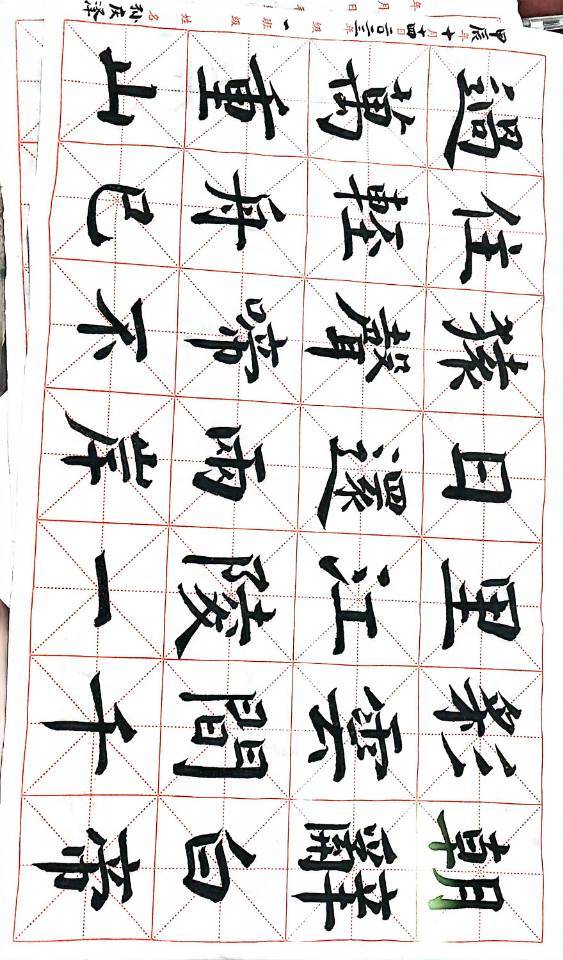 朝辭白帝
彩雲間千
里江陵一
日還雨岸
猿聲啼不
住輕舟已
過萬重山
甲辰年十月十四日
年 月 日
级 班级 姓名